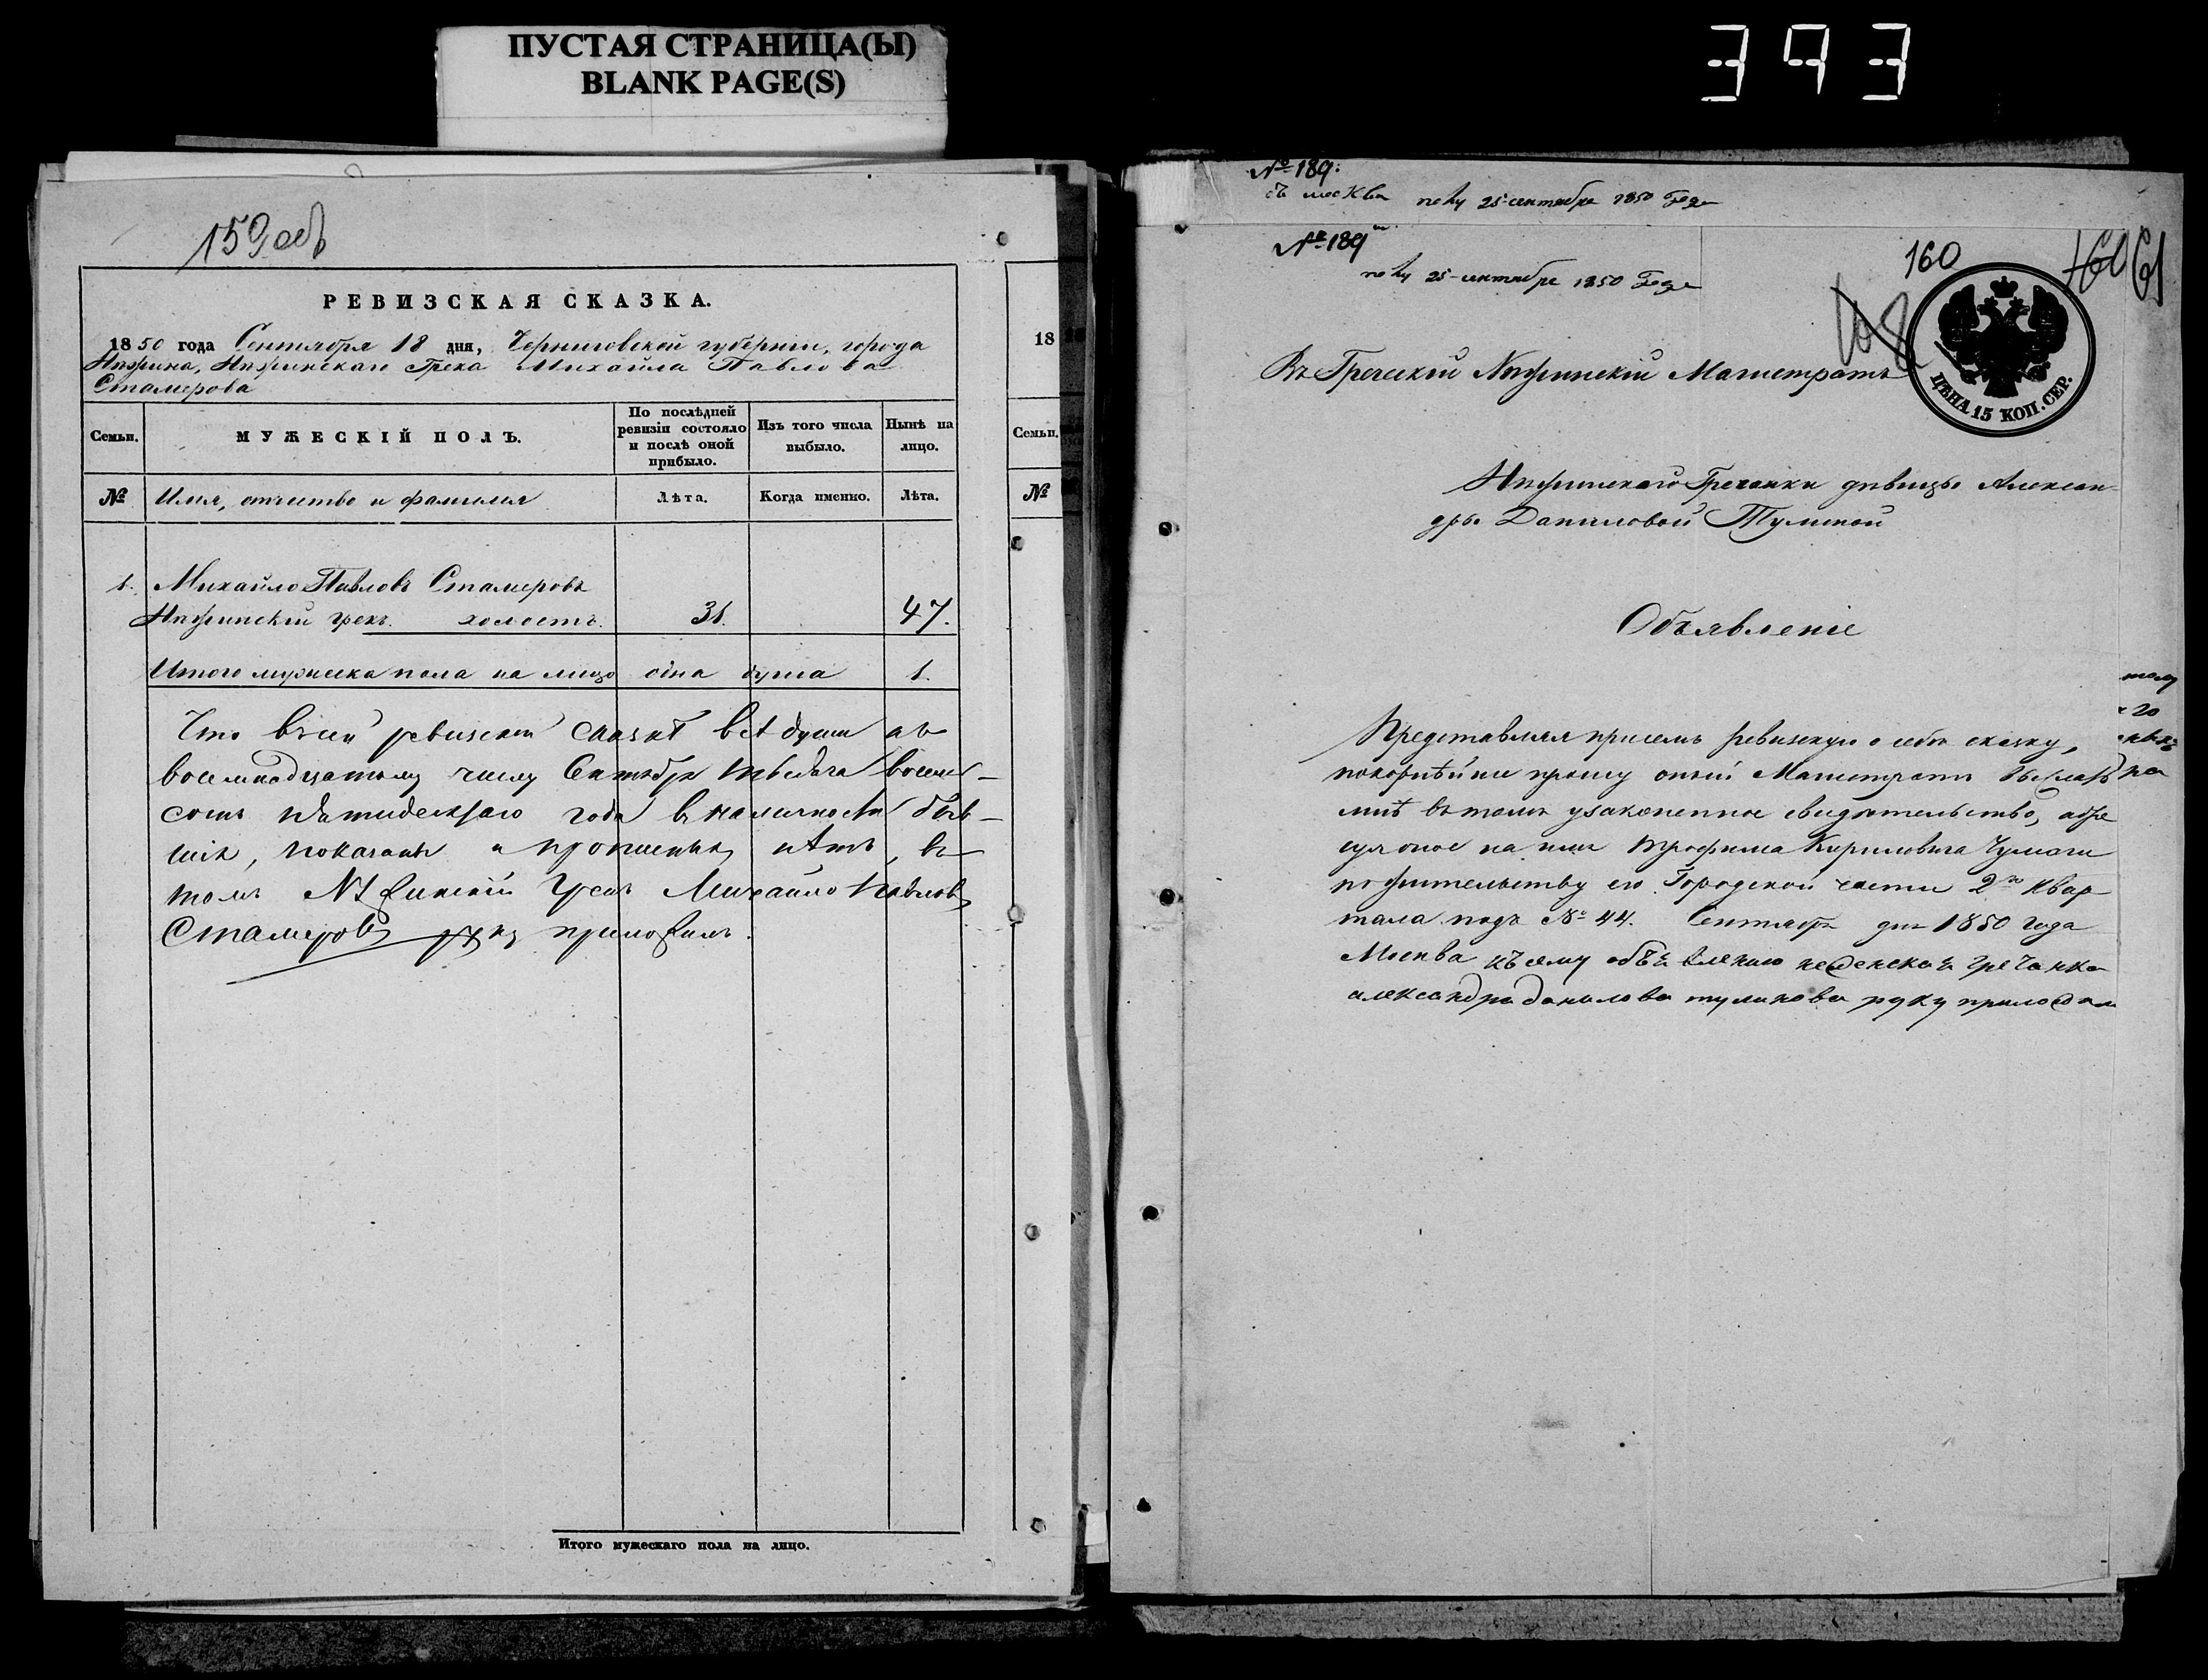 ПУСТАЯ СТРАНИЦА(Ы)
BLANK PAGE(S)
393
159 об
РЕВИЗСКАЯ СКАЗКА.
1850 года Сентября 18 дня, Черниговской губернии, города
Нѣжина, Нѣжинскаго Грека Михайла Павлова
Стамерова
Семьи.
МУЖЕСКІЙ ПОЛЪ.
По послѣдней ревизіи состояло и послѣ оной прибыло.
Изъ того числа выбыло.
Нынѣ на лицо.
№
Имя, отчество и фамилия
Лѣта.
Когда именно.
Лѣта.
1. Михайло Павловъ Стамеровъ
Нѣжинскій грекъ. холостъ. 31. 47.
Итого мужеска пола на лицо одна душа 1.
Что въ сей ревизской сказкѣ всѣ души къ
восемнадцатому числу Сентября тысяча восемь-
сотъ пятидесятаго года в наличности быв-
шія, показаны и прописныхъ нѣтъ, въ
томъ Нѣжинскій Грекъ Михайло Павловъ
Стамеровъ руку приложилъ.
Итого мужескаго пола на лицо.
18
Семьи.
№
№ 189.
съ москва 25 сентября 1850 Года
№ 189
25 сентября 1850 Года
160
161
ЦѢНА 15 КОП. СЕР.
Въ Греческій Нѣжинскій Магистратъ
Нѣжинскаго Гречанки дѣвицы Алексан-
дры Даниловой
Объявленіе
Представляя присемъ ревизскую о себѣ сказку,
покорнѣйше прошу оный Магистратъ выслать
мнѣ въ томъ узаконенное свидѣтельство, адре
суя оное на имя Трофима Кириловича
по жительству его Городской части 2го Квар
тала подъ № 44. Сентября дня 1850 года
Москва къ сему объявлению неженская гречанка
александра данилова руку приложила